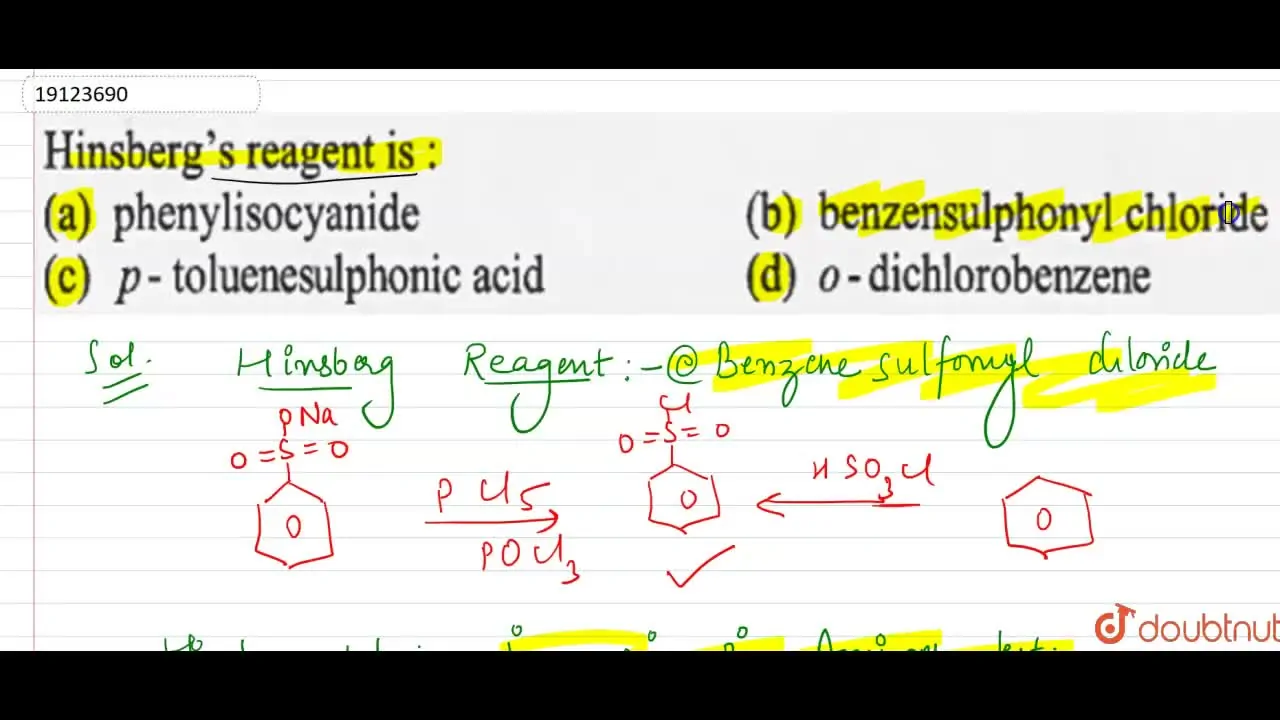 19123690
Hinsberg's reagent is :
(a) phenylisocyanide (b) benzensulphonyl chloride
(c) p - toluenesulphonic acid (d) o - dichlorobenzene
Sol. Hinsberg Reagent :- @ Benzene sulfonyl chloride
ONa Cl
O = S = O O = S = O
P Cl5 HSO3Cl
POCl3
doubtnut